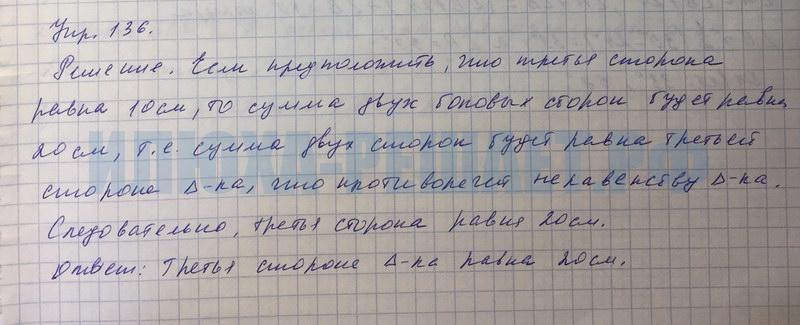 Упр. 136.
Решение. Если предположить, что третья сторона
равна 10 см, то сумма двух боковых сторон будет равна
20 см, т.е. сумма двух сторон будет равна третьей
стороне Δ-ка, что противоречит неравенству Δ-ка.
Следовательно, третья сторона равна 20 см.
Ответ: третья сторона Δ-ка равна 20 см.